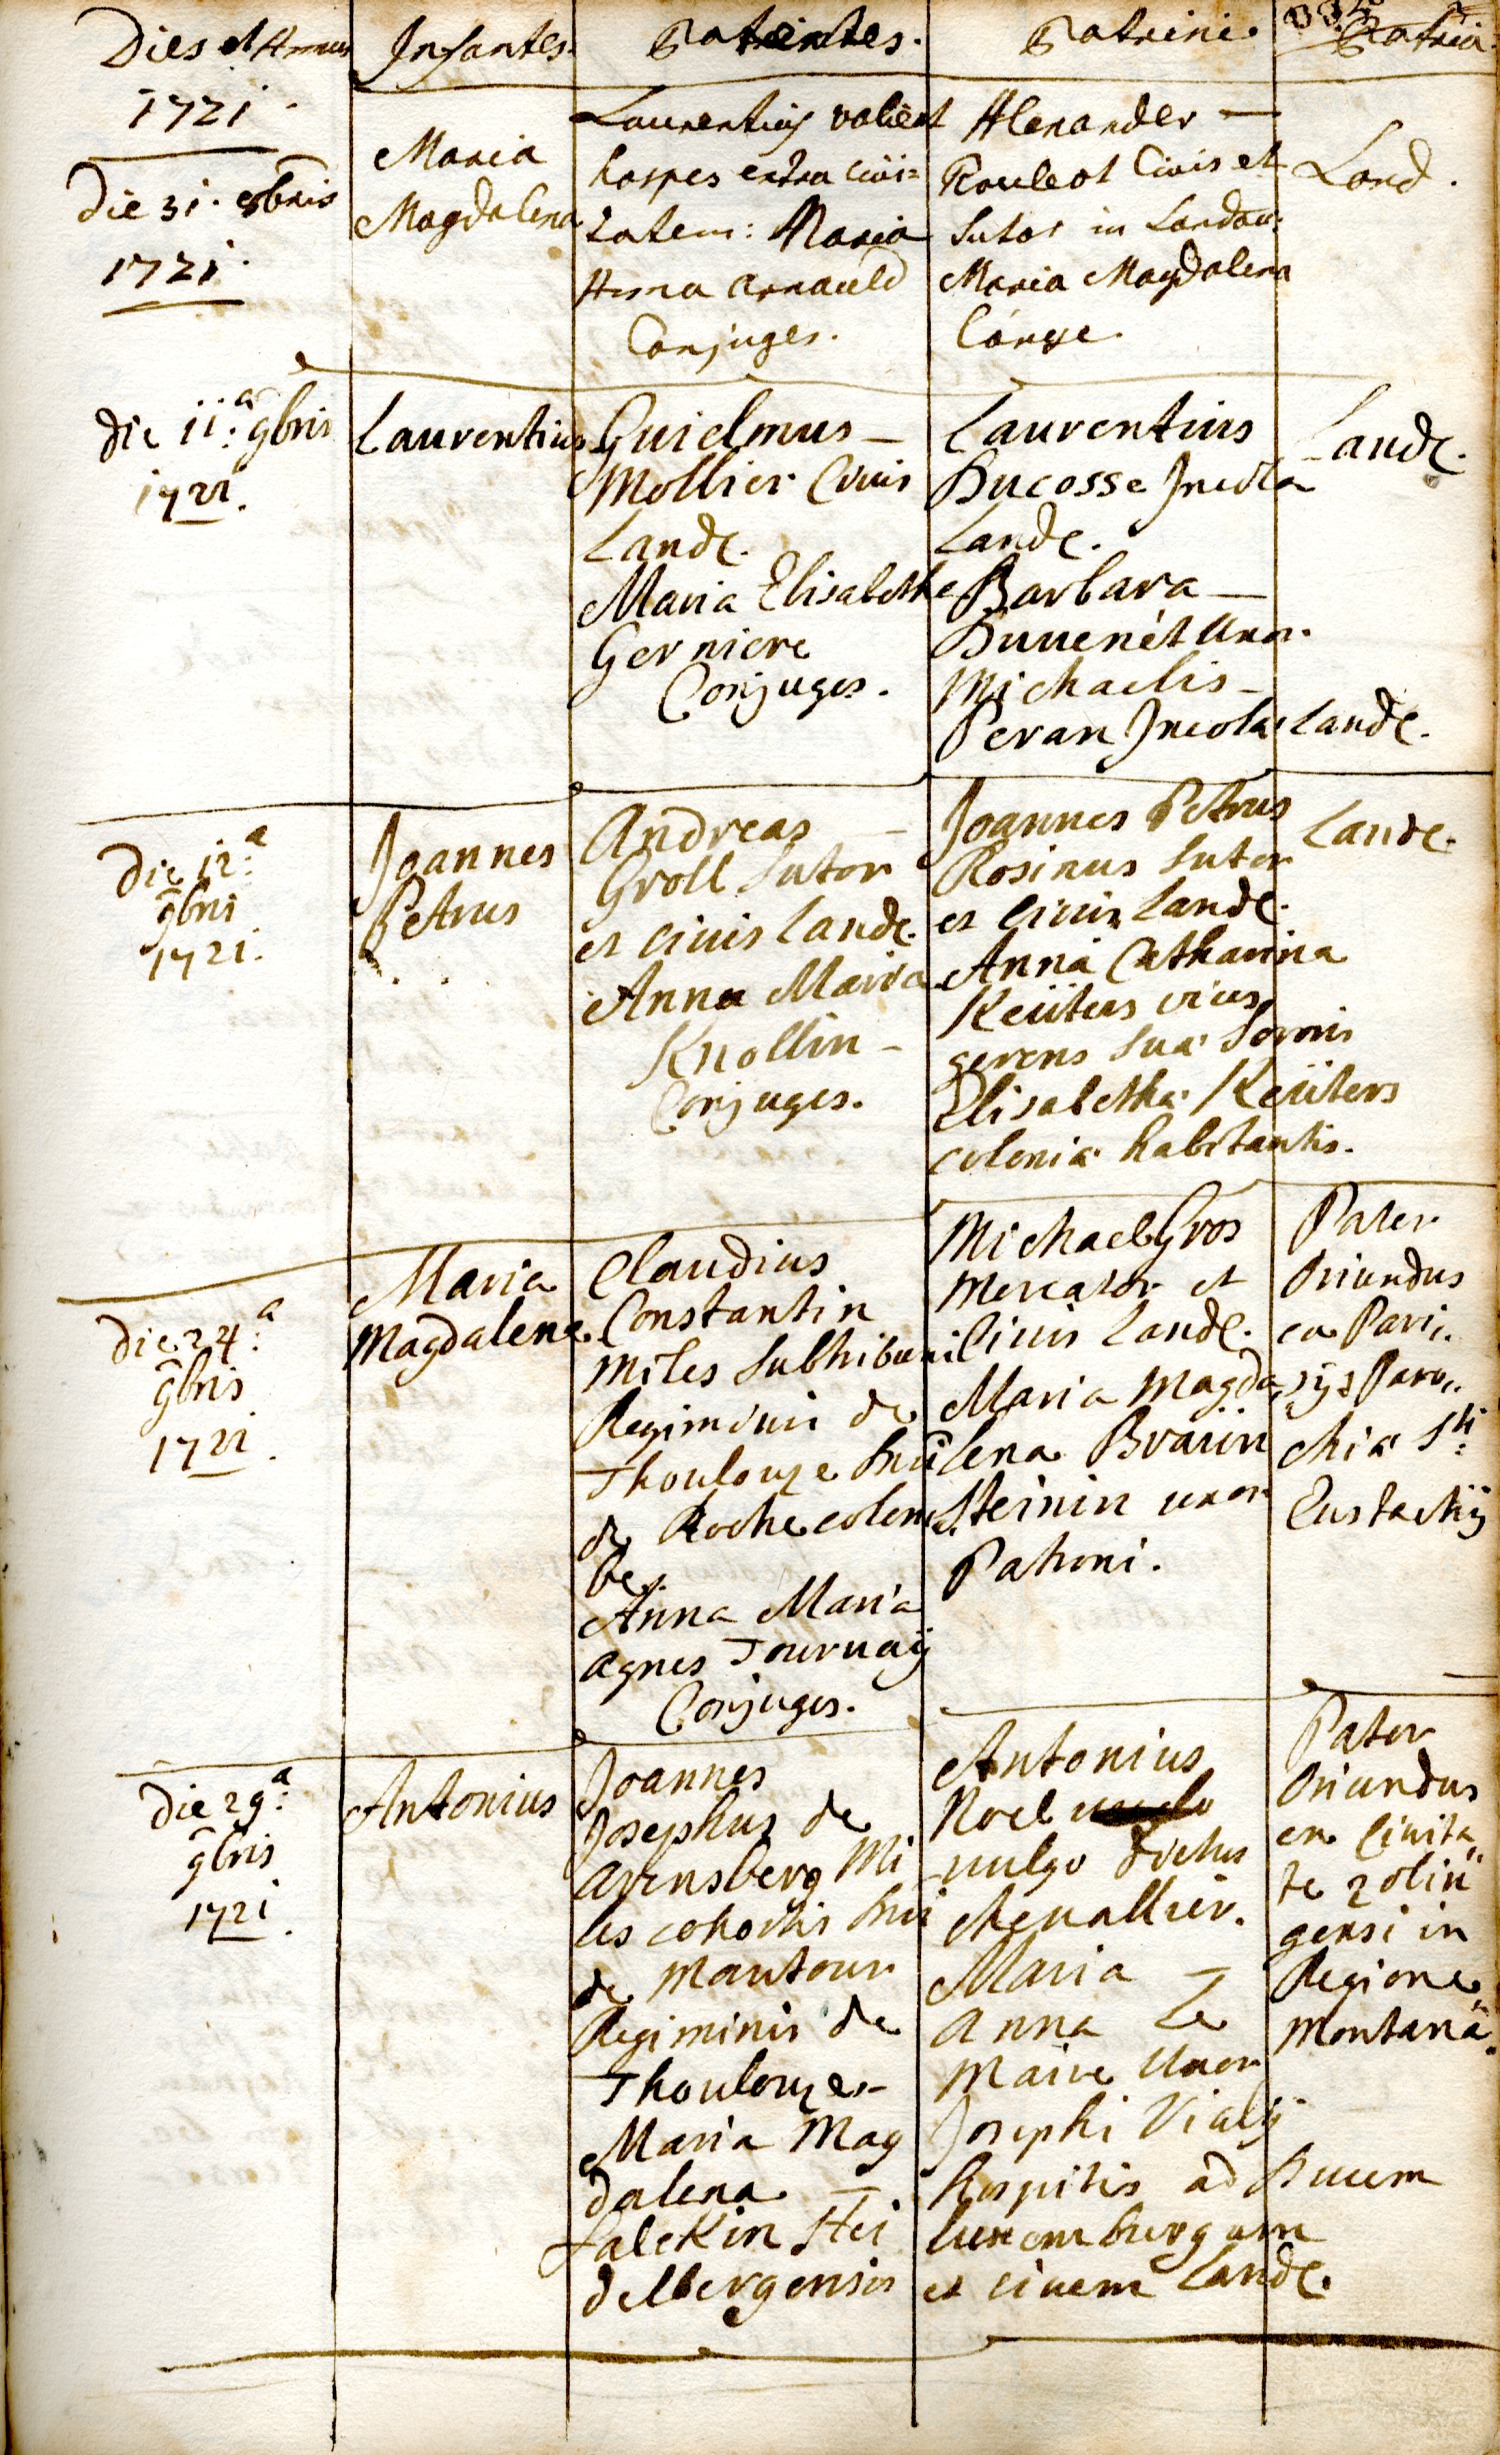 Dies et Annus
1721.
Infantes.
Parentes.
Patrini.
Patria.
die 31. 8bris
1721.
Maria
Magdalena
Laurentius valient
hospes extra civi=
tatem: Maria
Anna Arnauld
Conjuges.
Alexander —
Rouleot Civis et
Sutor in Landau:
Maria Magdalena
Land.
die 11.a 9bris
1721.
Laurentius
Guielmus —
Mollier Civis
Landę.
Maria Elisabetha
Gerniere
Conjuges.
Laurentius
Ducosse Incola
Landę.
Barbara —
Duvenét Uxor.
Michaelis —
Peran Incolae Landę.
Landę.
die 12.a
9bris
1721.
Joannes
Petrus
Andreas —
Groll Sutor
et civis Landę.
Anna Maria
Knollin —
Conjuges.
Joannes Petrus
Rosinus Sutor
et civis Landę.
Anna Catharina
Keüters vices
gerens suae Sororis
Elisabetha Keüters
colonia habitantis.
Landę.
die 24.a
9bris
1721.
Maria
Magdalena.
Claudius
Constantin
Miles Subtribuni
Regiminis de
Thoulouze Dni
de Rochecolom
be.
Anna Maria
Agnes Tournaÿ
Conjuges.
Michael Gros
Mercator et
Civis Landę.
Maria Magda
lena Braün
Steinin uxor
Patroni.
Pater
Oriundus
ex Pari,,
sijs Paro,,
chia Sti:
Eustachij
die 29.a
9bris
1721.
Antonius
Joannes
Josephus de
Arensberg Mi
les cohortis Dni
de Mautour
Regiminis de
Thoulouze —
Maria Mag
dalena —
Falckin Hei
delbergensis
Antonius
Noel
vulgo dictus
Chevallier.
Maria —
Anna Le
Maire Uxor
Josephi Vialÿ
hospitis ad Ducem
luxemburgum
et civem Landę.
Pater
Oriundus
ex Civita,,
te zolin
gensi in
Regione
Montana.